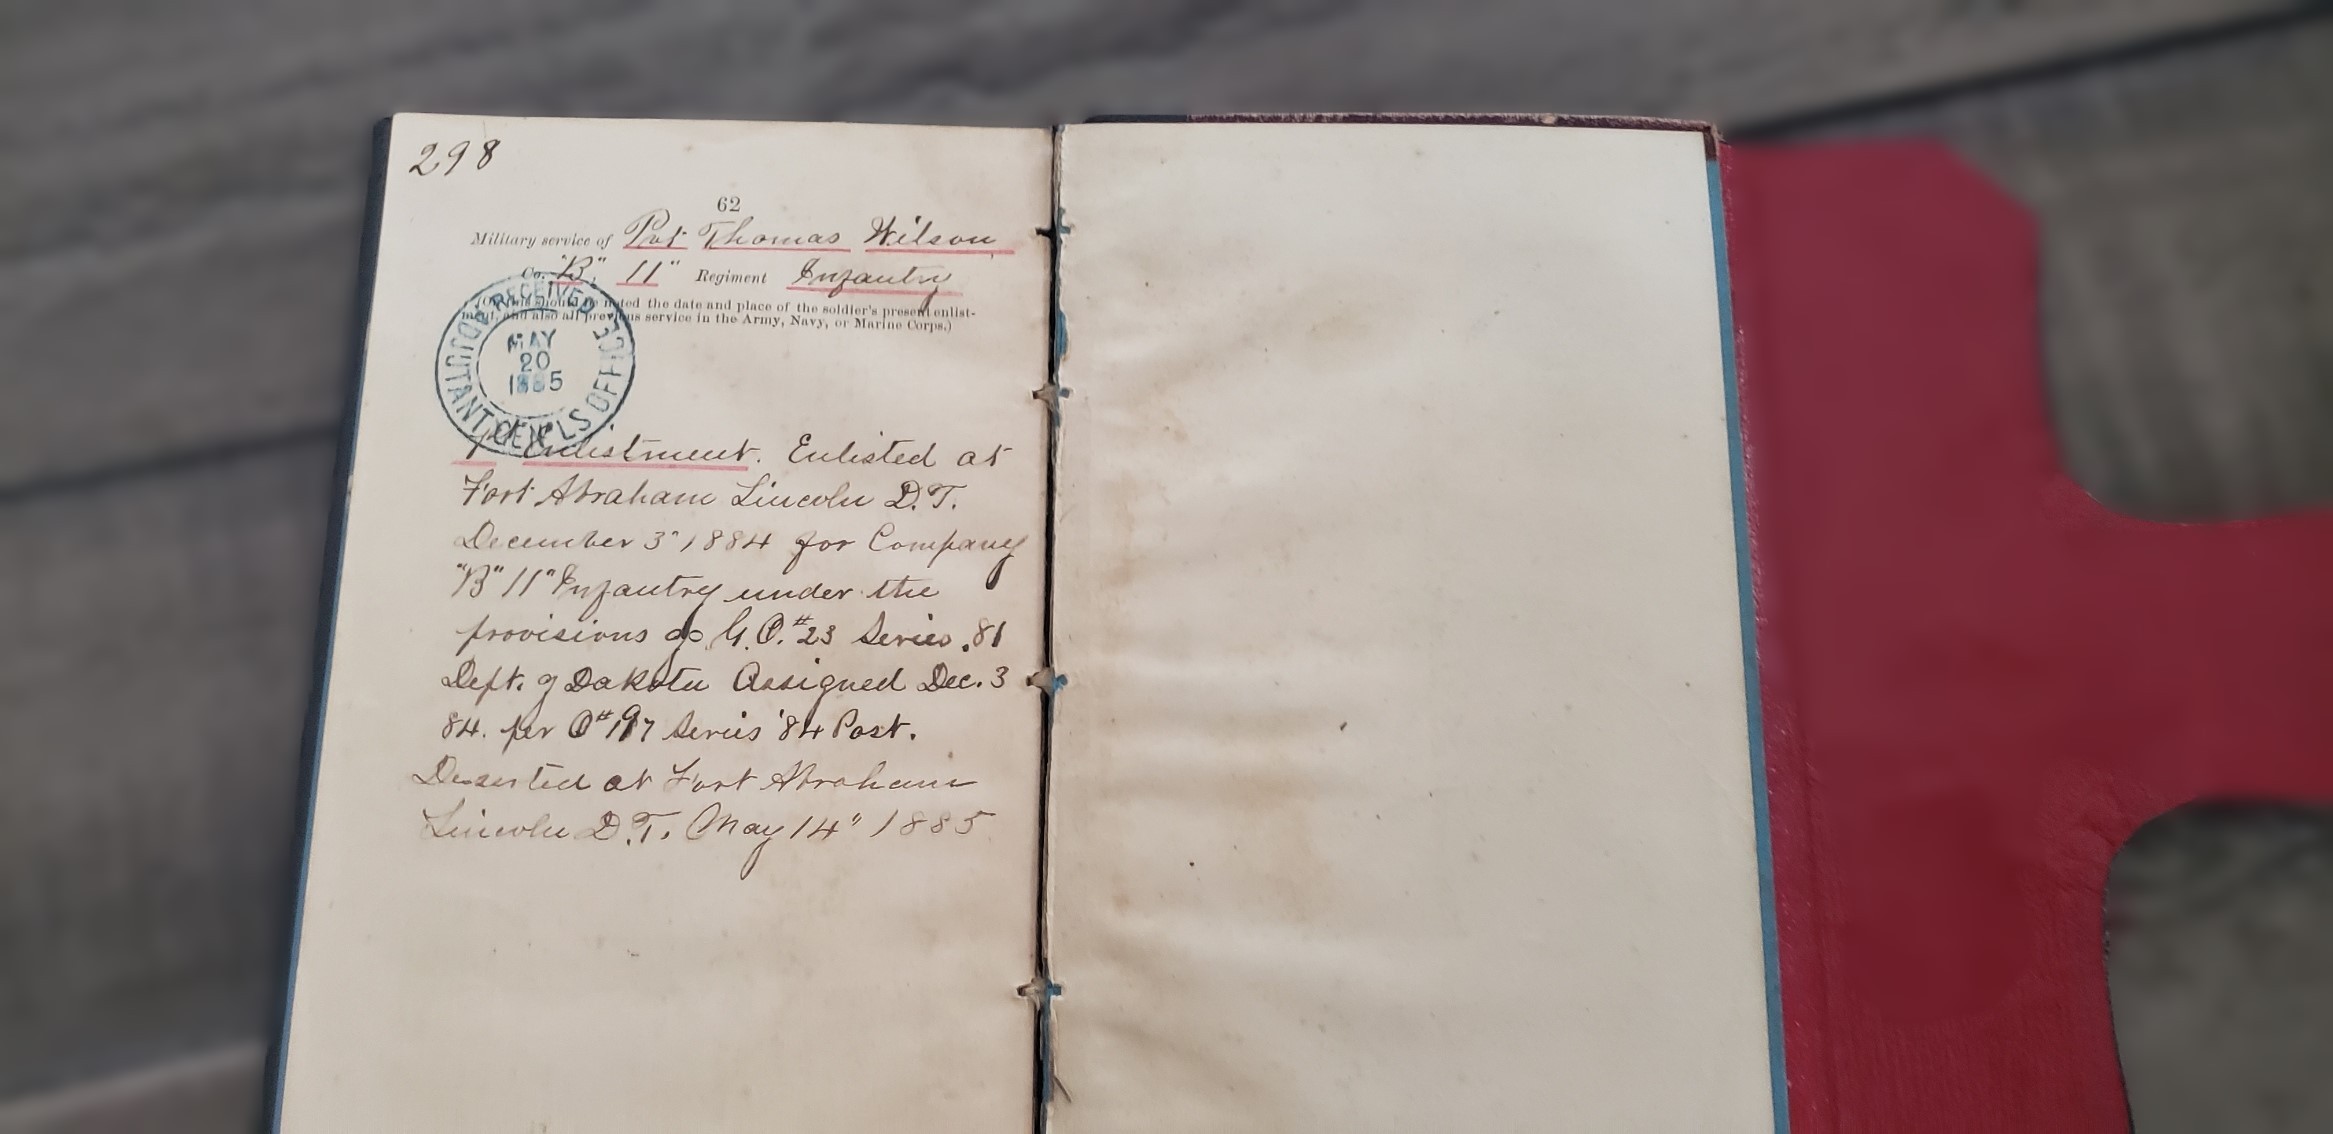 298
62
Military service of Pvt Thomas Wilson
Co. "B", 11" Regiment Infantry
(On this should be noted the date and place of the soldier's present enlist-
ment, and also all previous service in the Army, Navy, or Marine Corps.)
RECEIVED
MAY
20
1885
ADJUTANT GEN'LS OFFICE
Enlistment. Enlisted at
Fort Abraham Lincoln D.T.
December 3" 1884 for Company
"B" 11" Infantry under the
provisions of G.O. #23 Series .81
Dept. of Dakota Assigned Dec. 3
84. per O #197 Series '84 Post.
Deserted at Fort Abraham
Lincoln D.T. May 14" 1885